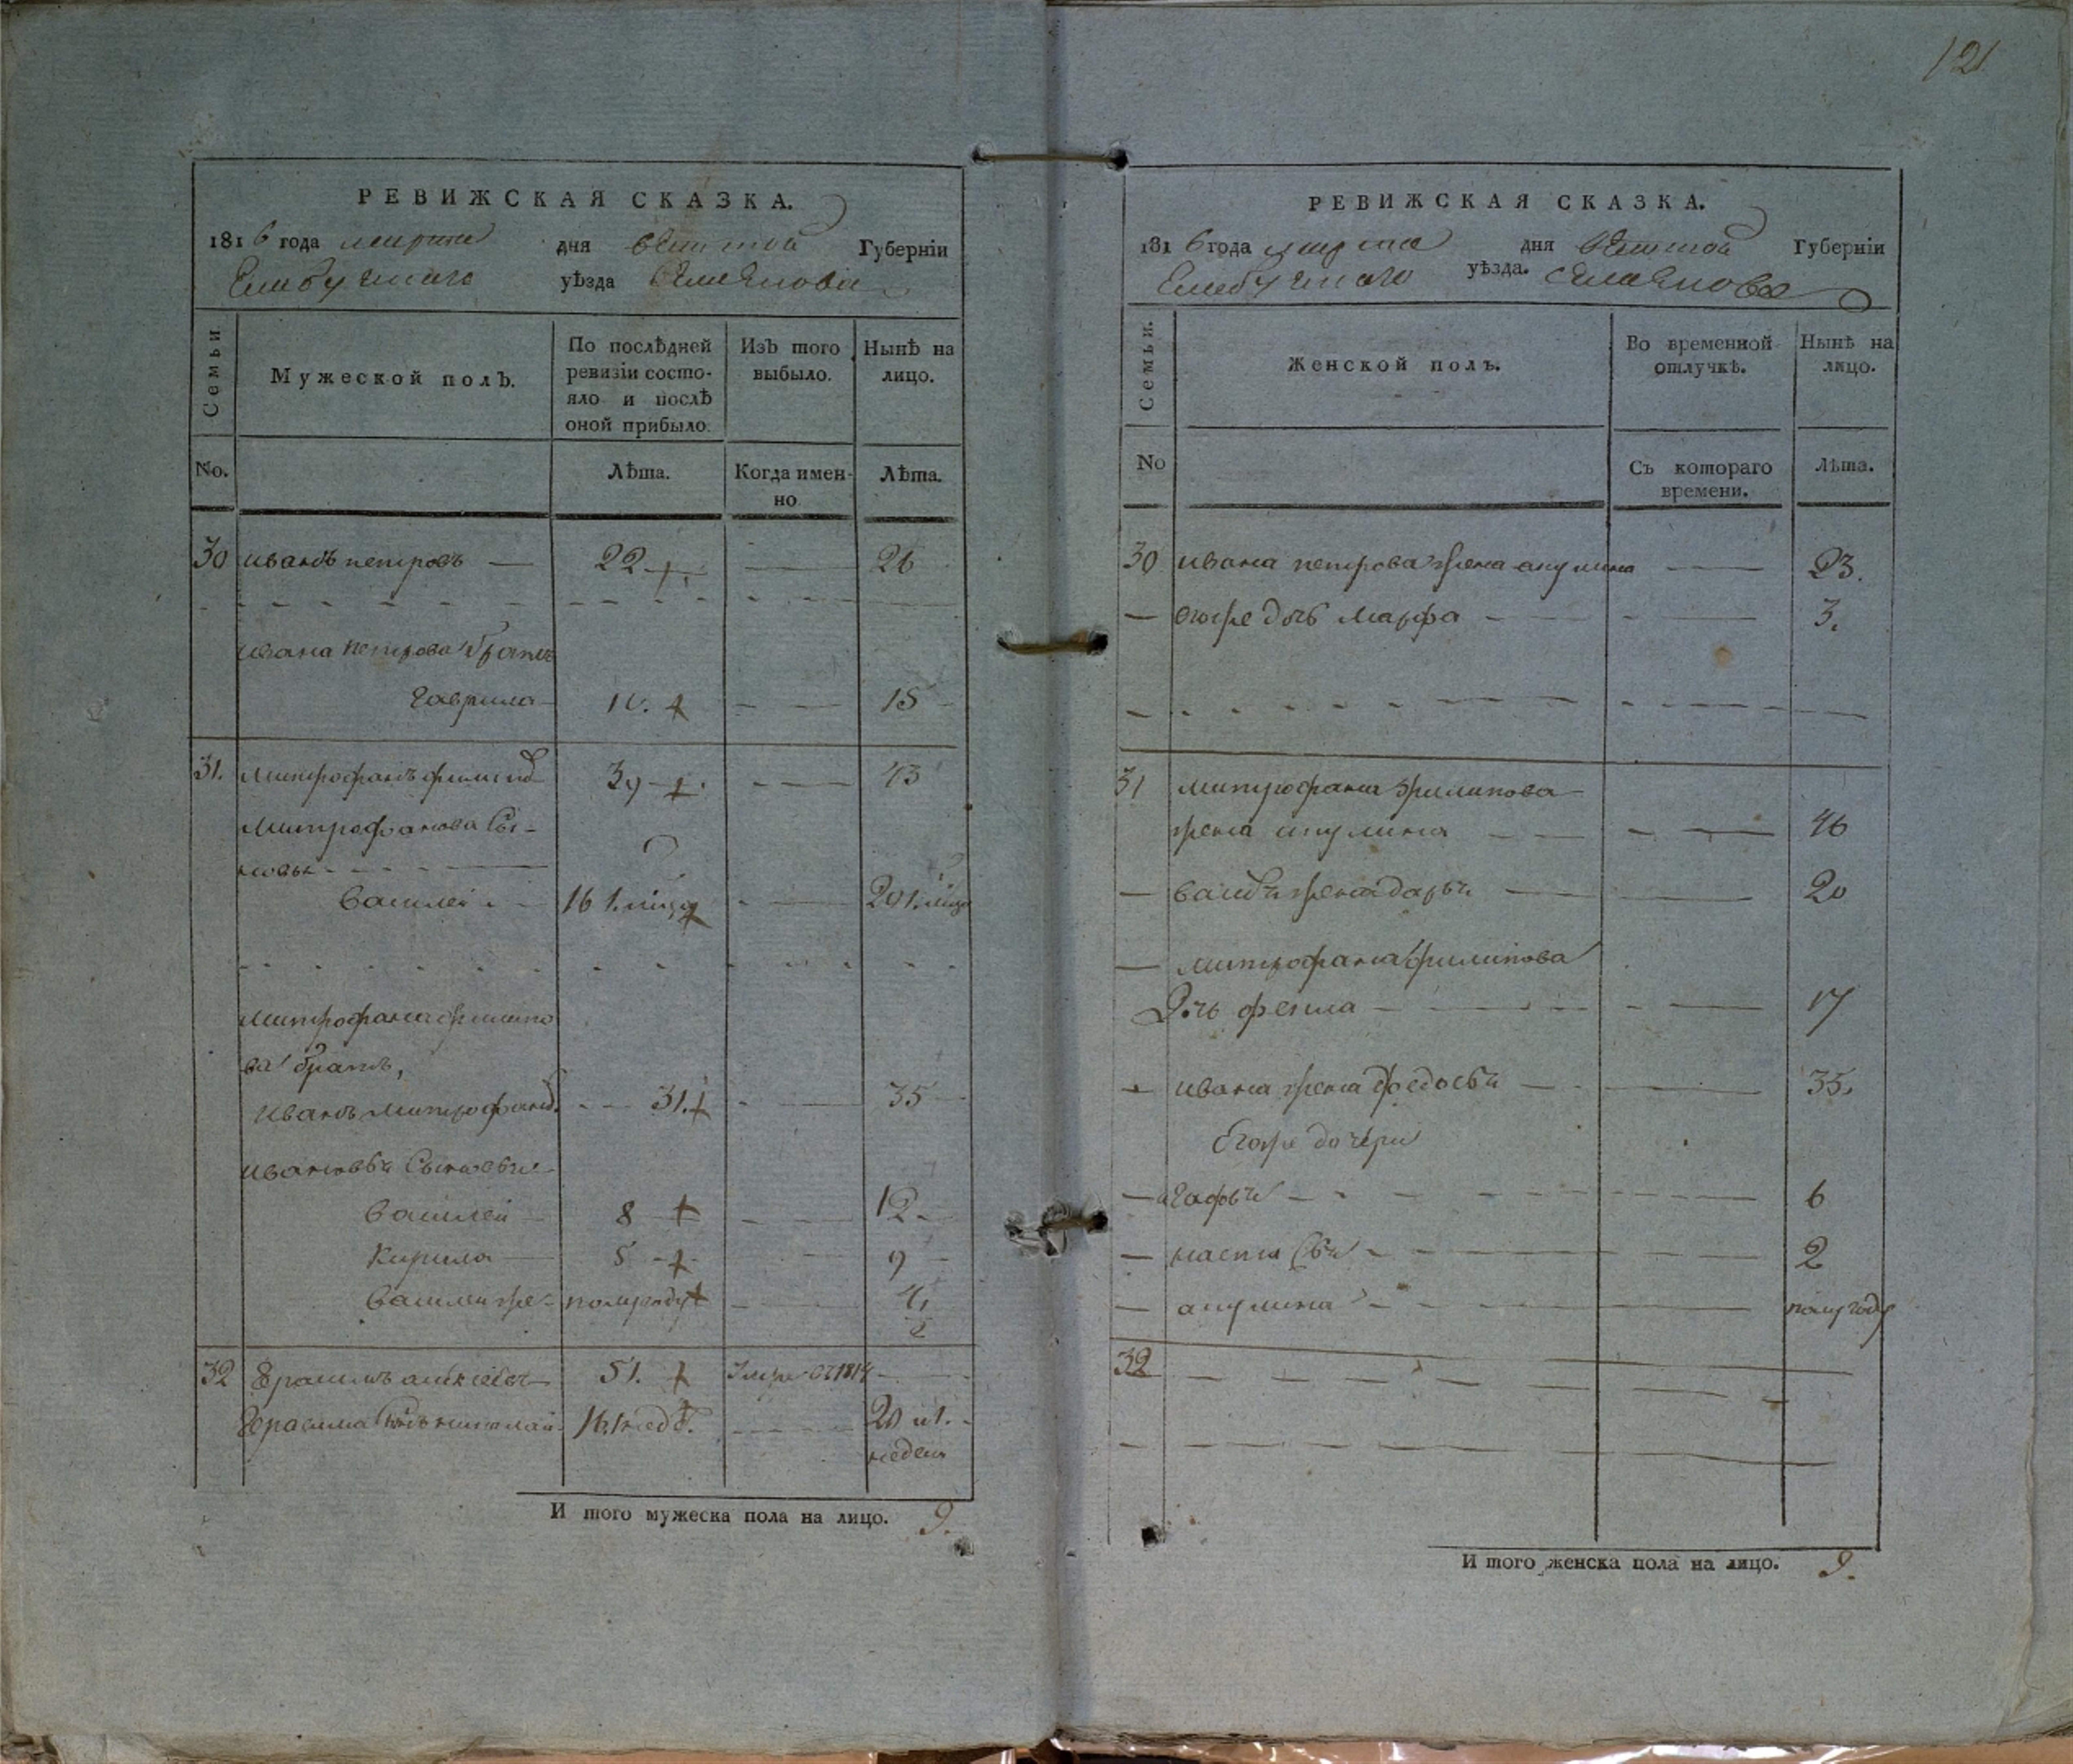 121
РЕВИЖСКАЯ СКАЗКА.
1816 года марта дня вятской Губерніи
Елабужского уѣзда
Семьи
Мужеской полъ.
По послѣдней ревизіи состояло и послѣ оной прибыло.
Изъ того выбыло.
Нынѣ на лицо.
No.
Лѣта.
Когда именно.
Лѣта.
30 иванъ петровъ — 22 — 26
ивана петрова братъ
гаврила 15
31. митрофанъ филипов 39 43
митрофанова сы-
новья
василеи 16 20
митрофана филипо
ва братъ,
иванъ митрофанов 31. 35
ивановы сыновья
василеи 8 12
кирила 5 9
василеи же полугоду 4 1/2
32 51. 1814
герасима сынъ николаи 16. 20 и 1.
недели
И того мужеска пола на лицо. 9.
РЕВИЖСКАЯ СКАЗКА.
1816 года марта дня вятской Губерніи
Елабужского уѣзда.
Семьи.
Женской полъ.
Во временной отлучкѣ.
Нынѣ на лицо.
No
Съ котораго времени.
Лѣта.
30 ивана петрова жена акулина 23.
— егоже дочь марфа 3.
31 митрофана филипова
жена акулина 46
— жена дарья 20
— митрофана филипова
дочь 17
— ивана жена федосья 35.
егоже дочери
— агафья 6
— настасья 2
— акулина полугоду
32
И того женска пола на лицо. 9.